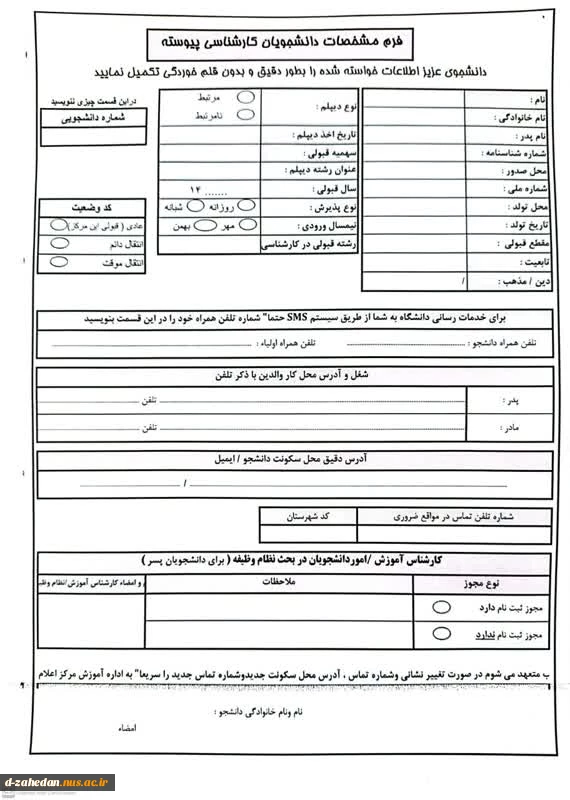 فرم مشخصات دانشجویان کارشناسی پیوسته
دانشجوی عزیز اطلاعات خواسته شده را بطور دقیق و بدون قلم خوردگی تکمیل نمایید
نام :
نام خانوادگی :
نام پدر :
شماره شناسنامه :
محل صدور :
شماره ملی :
محل تولد :
تاریخ تولد :
مقطع قبولی :
تابعیت :
دین / مذهب : /
نوع دیپلم : مرتبط
نامرتبط
تاریخ اخذ دیپلم :
سهمیه قبولی :
عنوان رشته دیپلم :
سال قبولی : ....... ۱۴
نوع پذیرش : روزانه شبانه
نیمسال ورودی : مهر بهمن
رشته قبولی در کارشناسی
در این قسمت چیزی ننویسید
شماره دانشجویی
کد وضعیت
عادی ( قبولی این مرکز)
انتقال دائم
انتقال موقت
برای خدمات رسانی دانشگاه به شما از طریق سیستم SMS حتما" شماره تلفن همراه خود را در این قسمت بنویسید
تلفن همراه دانشجو : تلفن همراه اولیاء :
شغل و آدرس محل کار والدین با ذکر تلفن
پدر : تلفن
مادر : تلفن
آدرس دقیق محل سکونت دانشجو / ایمیل
/
شماره تلفن تماس در مواقع ضروری کد شهرستان
کارشناس آموزش /اموردانشجویان در بحث نظام وظیفه ( برای دانشجویان پسر )
نوع مجوز ملاحظات و امضاء کارشناس آموزش/نظام وظی
مجوز ثبت نام دارد
مجوز ثبت نام ندارد
ب متعهد می شوم در صورت تغییر نشانی وشماره تماس ، آدرس محل سکونت جدیدوشماره تماس جدید را سریعا" به اداره آموزش مرکز اعلام
نام ونام خانوادگی دانشجو :
امضاء
d-zahedan.nus.ac.ir